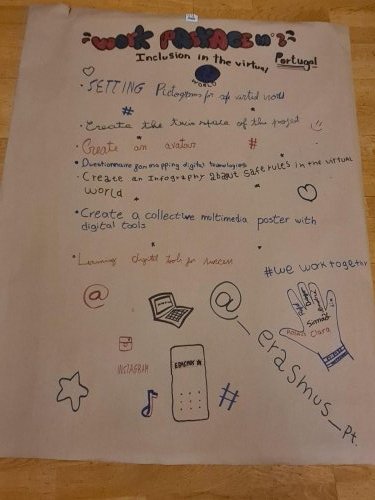 WORK PACKAGE nº 3
Inclusion in the virtual
Portugal
WORLD
• SETTING Pictograms for a virtual world
#
• Create the of the project
• Create an avatar #
• Questionnaire for mapping digital tecnologies
• Create an Infography about safe rules in the virtual
world
• Create a collective multimedia poster with
digital tools
• Learning digital tools for success
#we work together
@
@_erasmus_pt.
Simão
Clara
INSTAGRAM
ERASMUS
#